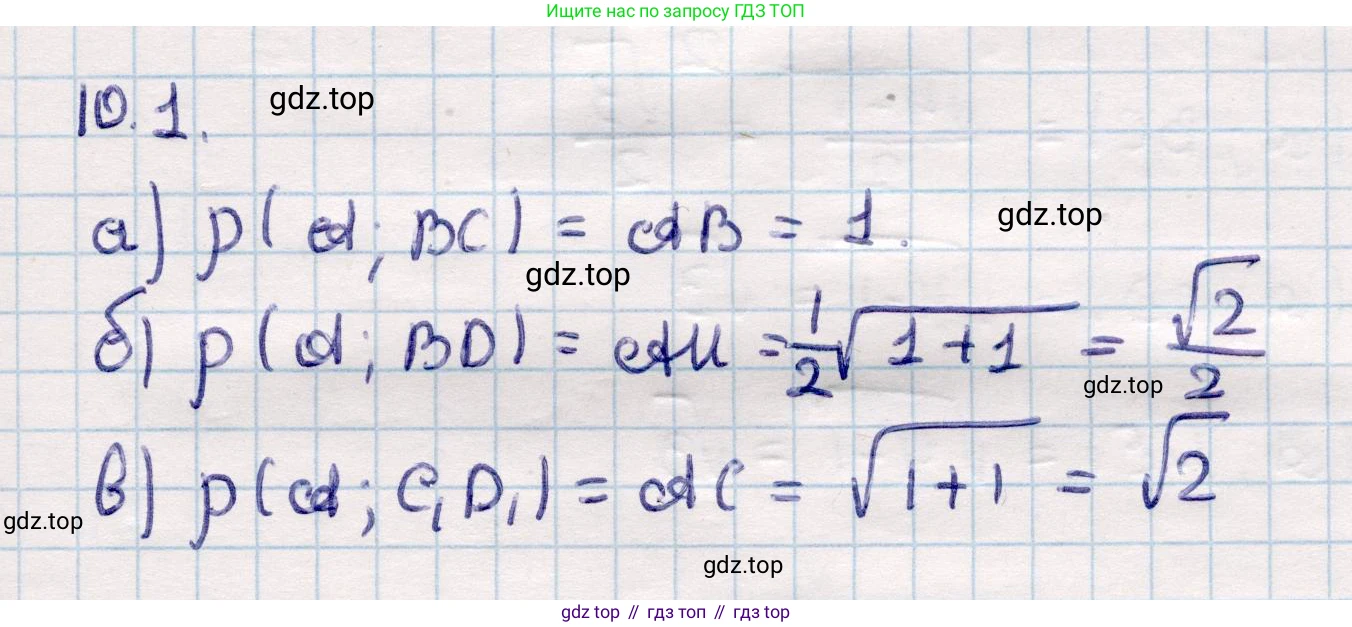 Ищите нас по запросу ГДЗ ТОП
10.1. gdz.top
а) ρ(A; BC) = AB = 1. gdz.top
gdz.top
б) ρ(A; BD) = AM = 1/2 √(1+1) = √2/2
gdz.top
в) ρ(A; C₁D₁) = AC = √(1+1) = √2
gdz.top
gdz.top
gdz top // гдз топ // гдз top